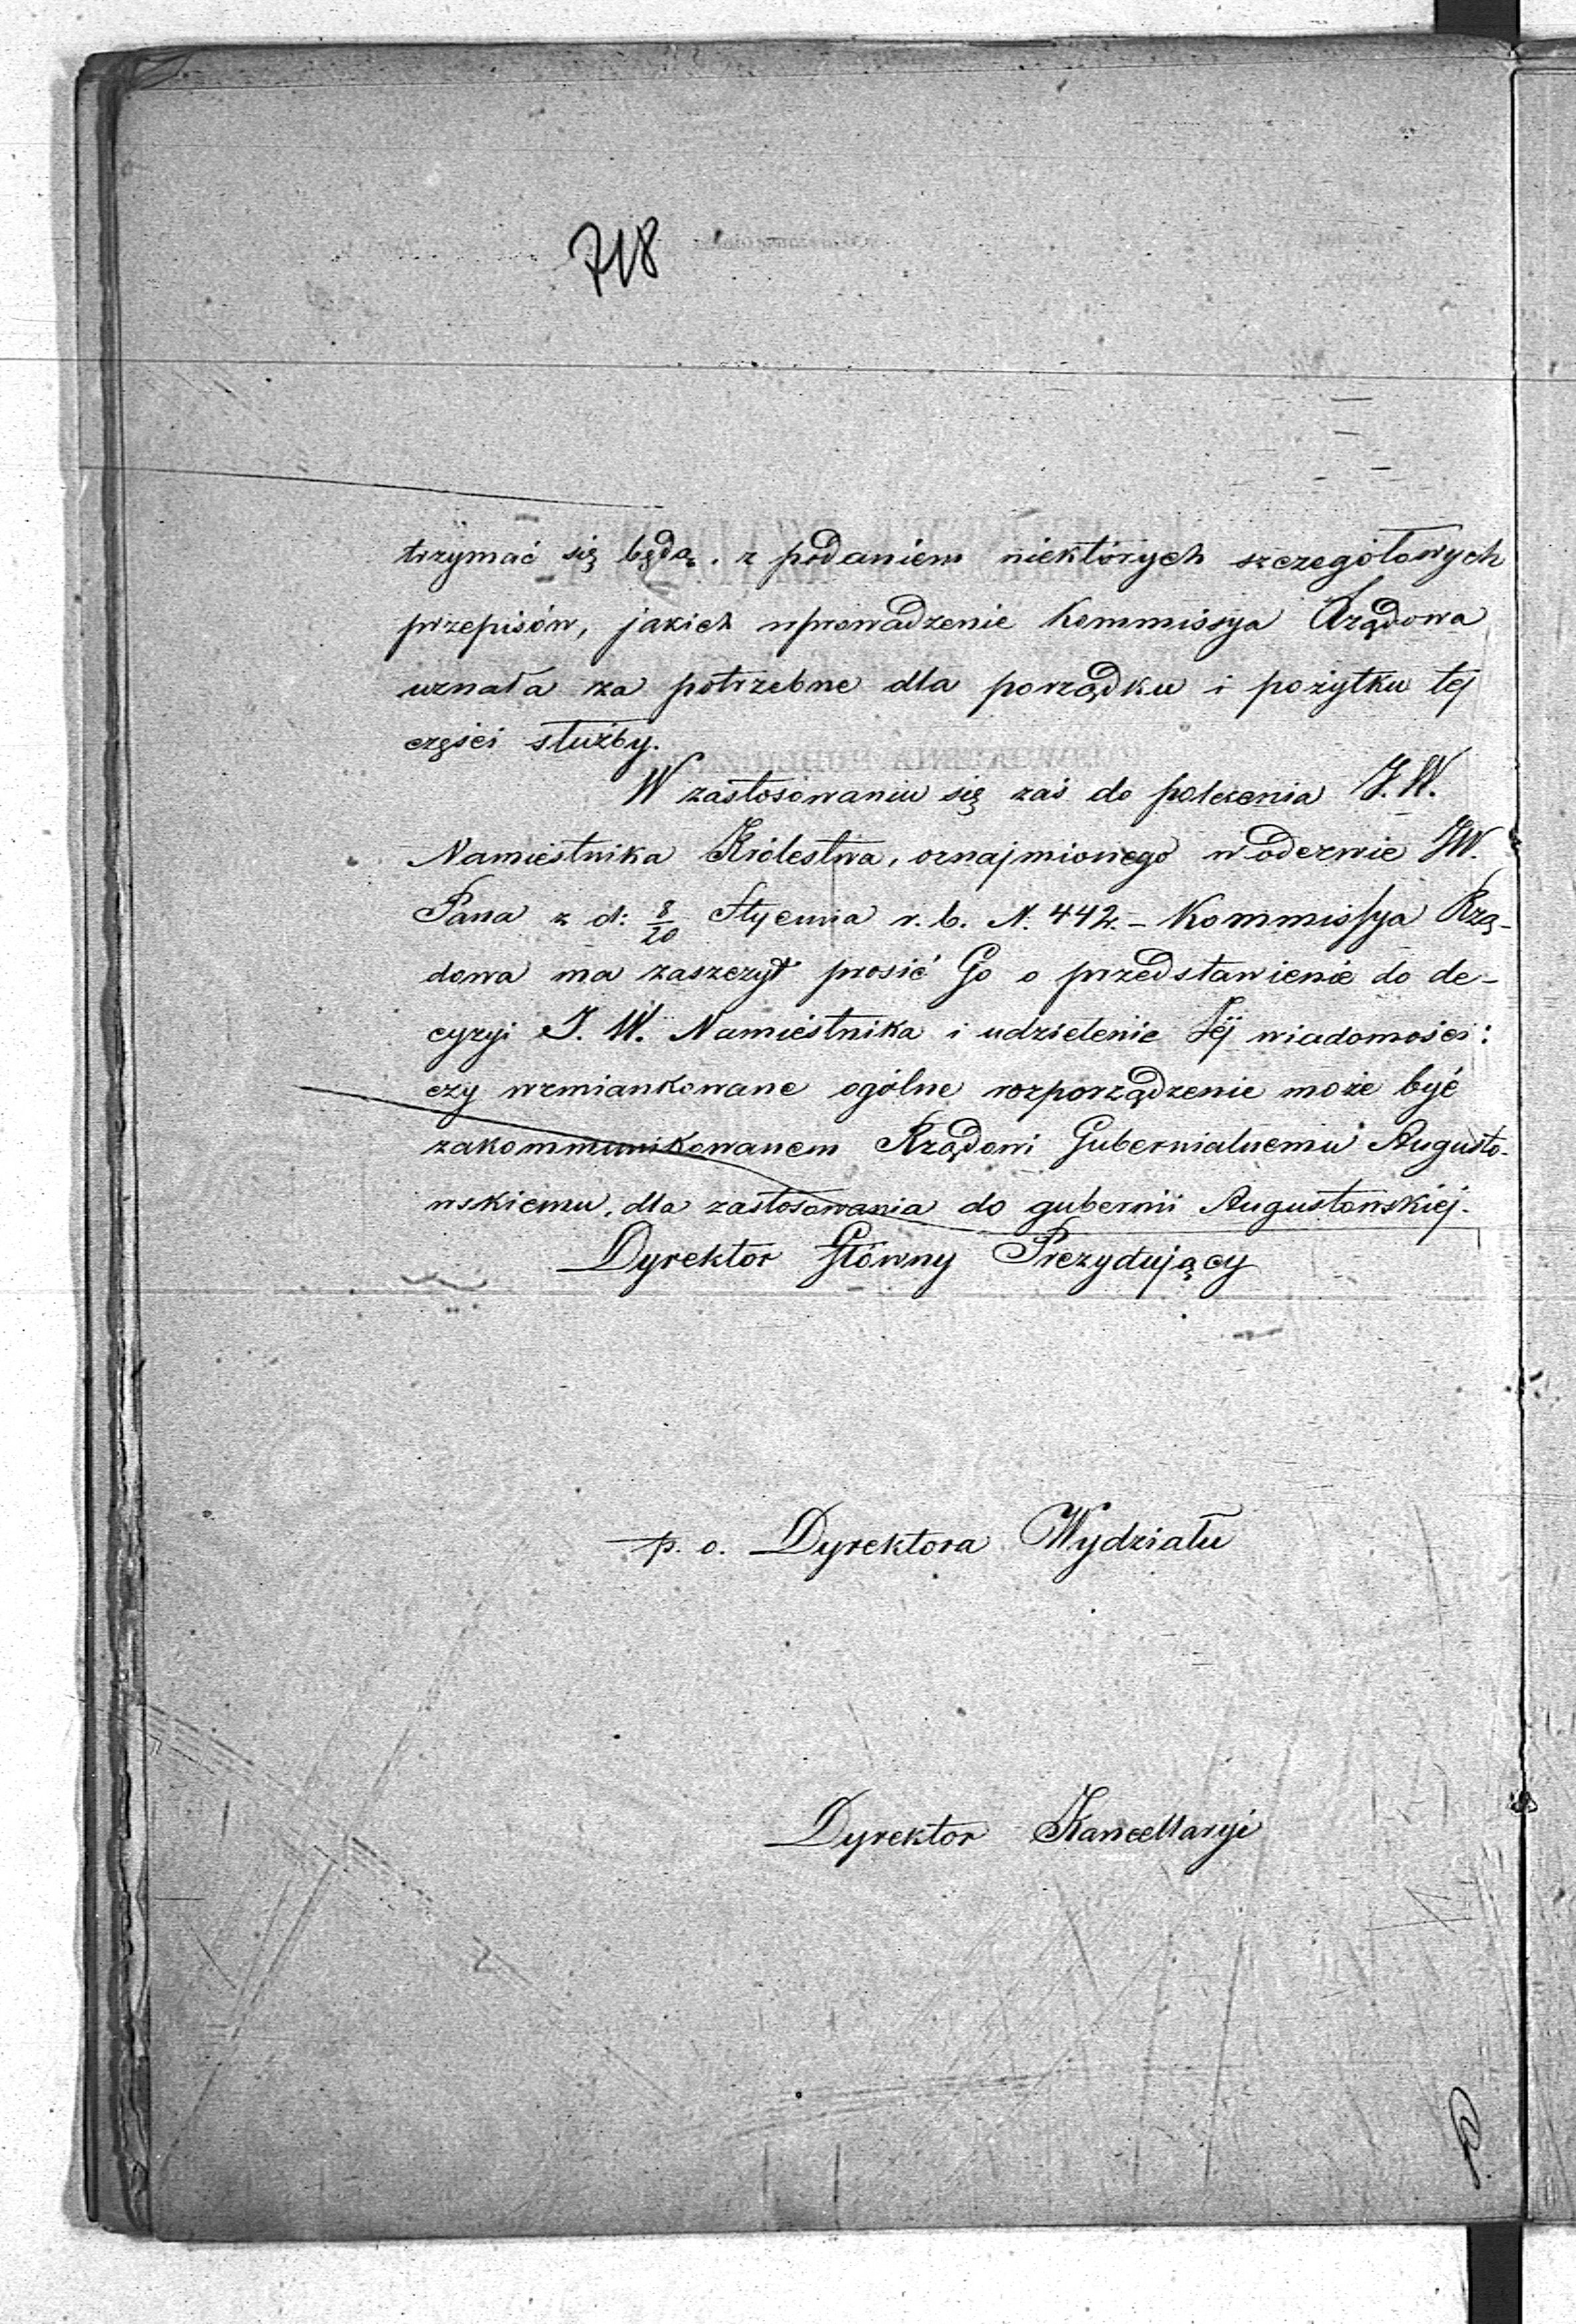 718
trzymać się będą, z podaniem niektórych szczegółowych
przepisów, jakich wprowadzenie Kommissya Rządowa
uznała za potrzebne dla porządku i pożytku tej
części służby.
W zastosowaniu się zaś do polecenia J. W.
Namiestnika Królestwa, oznajmionego w odezwie JW.
Pana z d: 8/20 Stycznia r. b. N. 442. – Kommissya Rzą-
dowa ma zaszczyt prosić Go o przedstawienie do de-
cyzyi J. W. Namiestnika i udzielenie Jej wiadomości:
czy wzmiankowane ogólne rozporządzenie może być
zakommunikowanem Rządowi Gubernialnemu Augusto-
wskiemu, dla zastosowania do gubernii Augustowskiej.
Dyrektor Główny Prezydujący
p. o. Dyrektora Wydziału
Dyrektor Kancellaryi